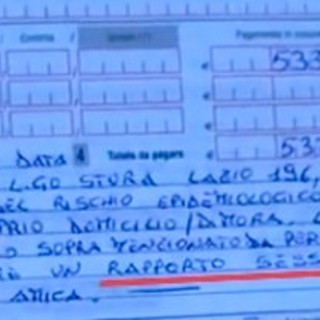 Pagamento in misura
€ 533
€
€
DATA 4 Totale da pagare € 533
L.GO STURA LAZIO 196,
DEL RISCHIO EPIDEMIOLOGICO
PRIO DOMICILIO/DIMORA.
SOPRA MENZIONATO DA PER
RE UN RAPPORTO SESS
AMICA.